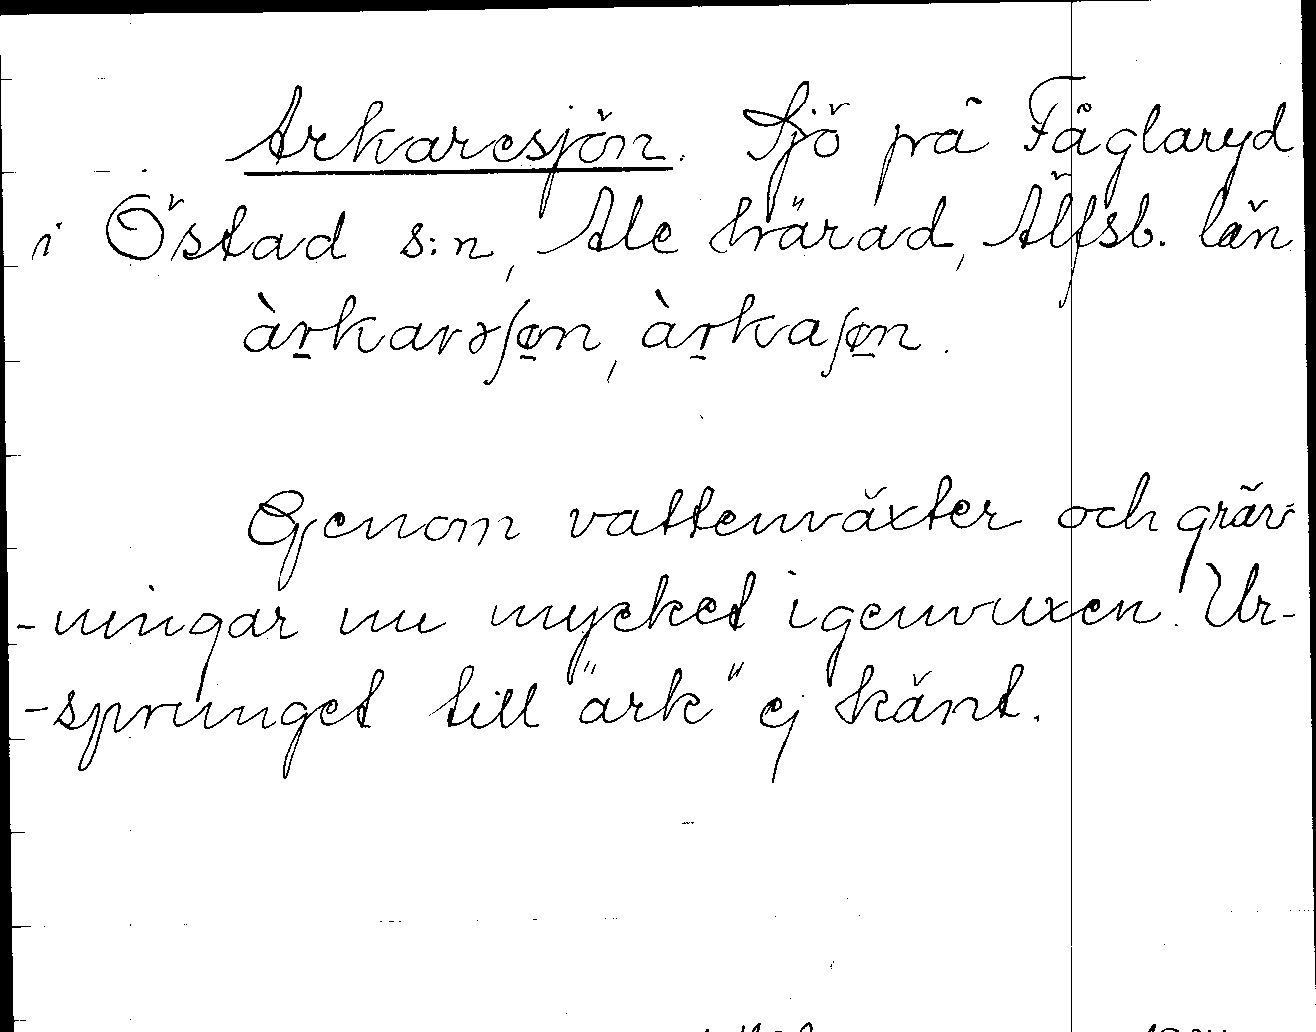 Arkaresjön. Sjö på Fåglaryd
i Östad s:n, Ale härad, Älfsb. län
àr̲karɘſø̲n, àr̲kaſø̲n.
Genom vattenväxter och gräv-
-ningar nu mycket igenvuxen. Ur-
-sprunget till "ark" ej känt.